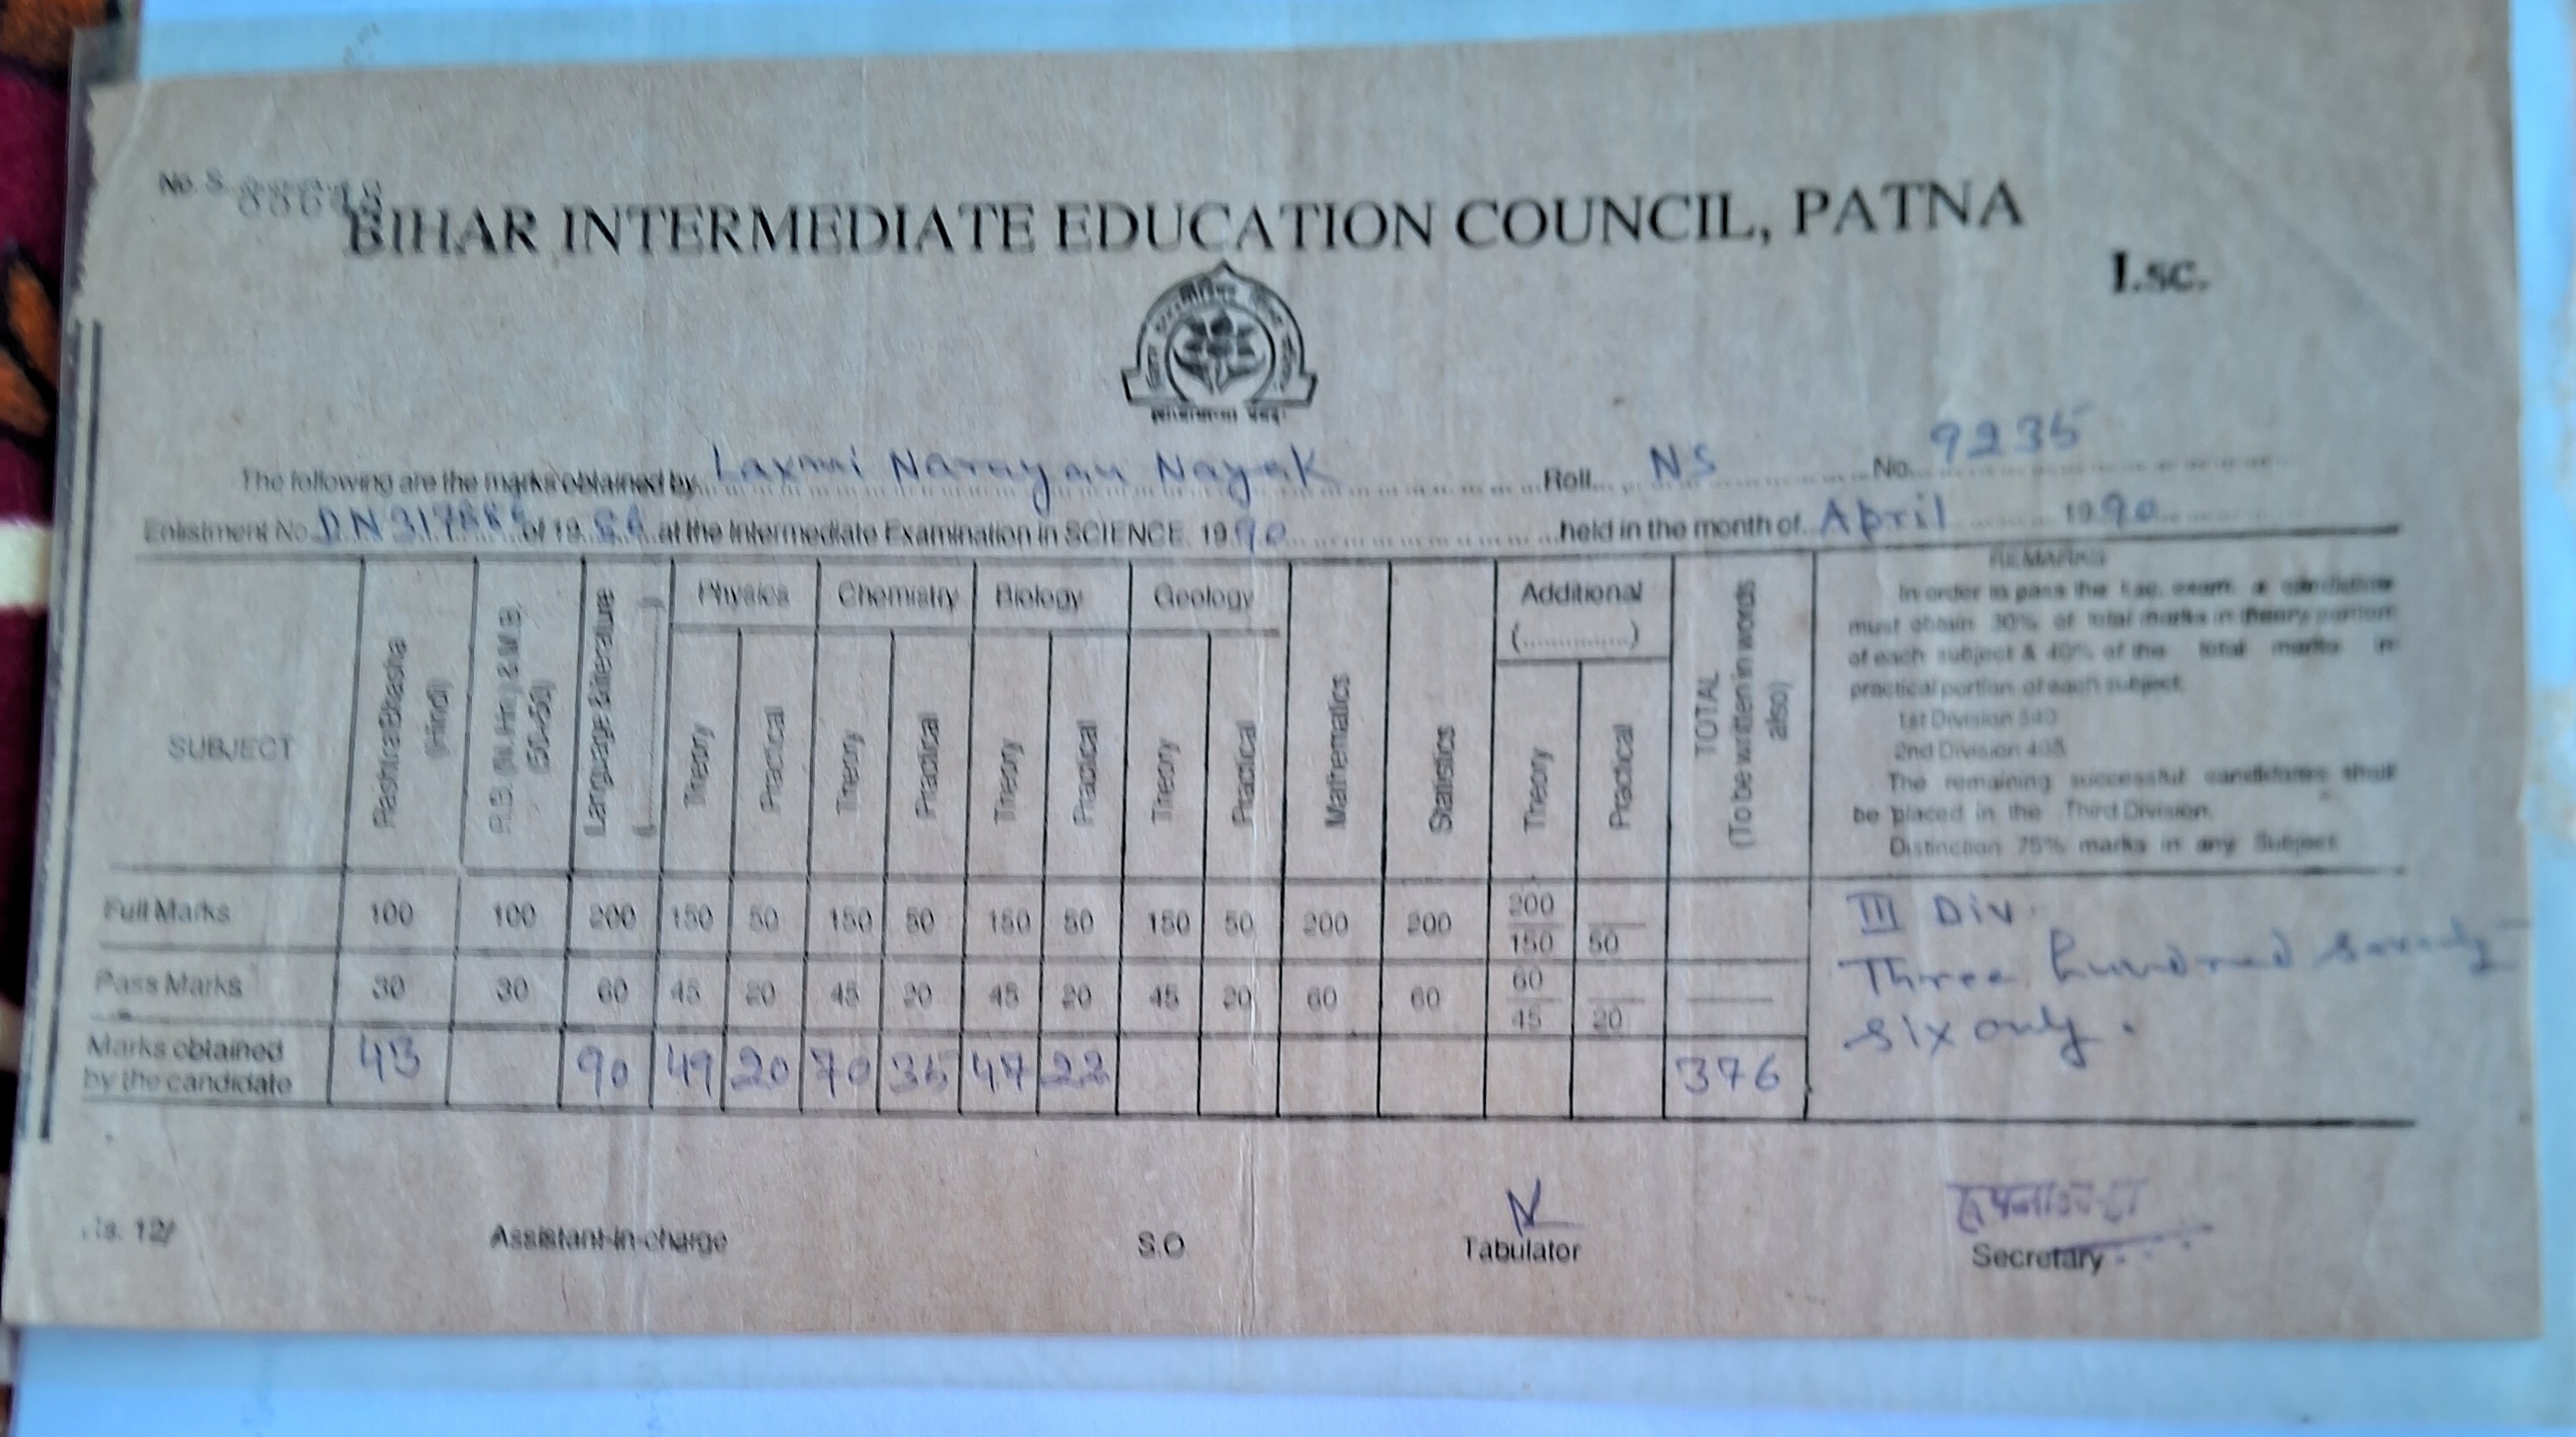 No. S. 88648
BIHAR INTERMEDIATE EDUCATION COUNCIL, PATNA
I.sc.
The following are the marks obtained by Laxmi Narayan Nayak Roll NS No. 9235
Enlistment No. of 19 at the Intermediate Examination in SCIENCE. 1990 held in the month of April 1990
SUBJECT
Rashtra Bhasha (Hindi)
R.B. (N.Hn.) & M.B. (50-50)
Language & literature (............)
Physics Theory Practical
Chemistry Theory Practical
Biology Theory Practical
Geology Theory Practical
Mathematics
Statistics
Additional (...............) Theory Practical
TOTAL (To be written in words also)
REMARKS
In order to pass the I.sc. exam. a candidate
must obtain 30% of total marks in theory portion
of each subject & 40% of the total marks in
practical portion of each subject.
1st Division 540
2nd Division 405
The remaining successful candidates shall
be placed in the Third Division.
Distinction 75% marks in any Subject
Full Marks 100 100 200 150 50 150 50 150 50 150 50 200 200 200 150 50
Pass Marks 30 30 60 45 20 45 20 45 20 45 20 60 60 60 45 20
Marks obtained by the candidate 43 90 49 20 70 35 47 22 376
III Div.
Three hundred seventy
six only.
Rs. 12/
Assistant-in-charge
S.O.
Tabulator
Secretary